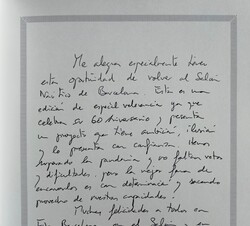 Me alegra especialmente tener
esta oportunidad de volver al Salón
Náutico de Barcelona. Esta es una
edición de especial relevancia ya que
celebra su 60 Aniversario y presenta
un proyecto que tiene ambición, ilusión
y lo presenta con confianza. Hemos
superado la pandemia y no faltan retos
y dificultades, pero la mejor forma de
encararlos es con determinación y sacando
provecho de nuestras capacidades.
Muchas felicidades a todos en
Fira Barcelona, en el Salón y en